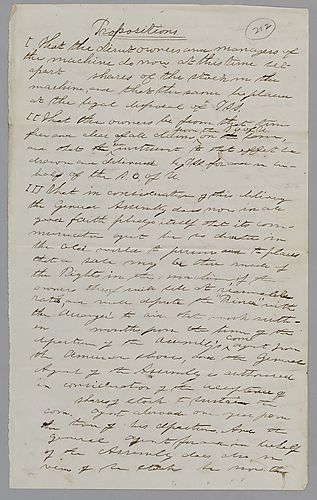 Propositions
212
I That the Joint owners and managers of
the machine do now at this time set
apart shares of the stock in the
machine, and that the same be placed
at the legal disposal of
II That the owners be from that time
free and clear of all claims, on the
and that an instrument to that effect be
drawn and delivered by in
half of the
III That in consideration of this delivery
the General Assembly does now in all
good faith pledge itself that its com-
munication agent be directed in
the old world to persons and to places
that a sale may be there made of
the Rights in the machine, if the
owners thereof will sell at reasonable
rates, and will depute the with
the to aid that work with-
in months from the time of the
departure of the Assembly's com. agent from
the American shores, and the General
Agent of the Assembly is authorized
in consideration of the acceptance of
shares of stock to sustain the
com. agent abroad one year from
the time of his departure. And the
general agent in behalf
of the Assembly does also, in
view of the stock be now